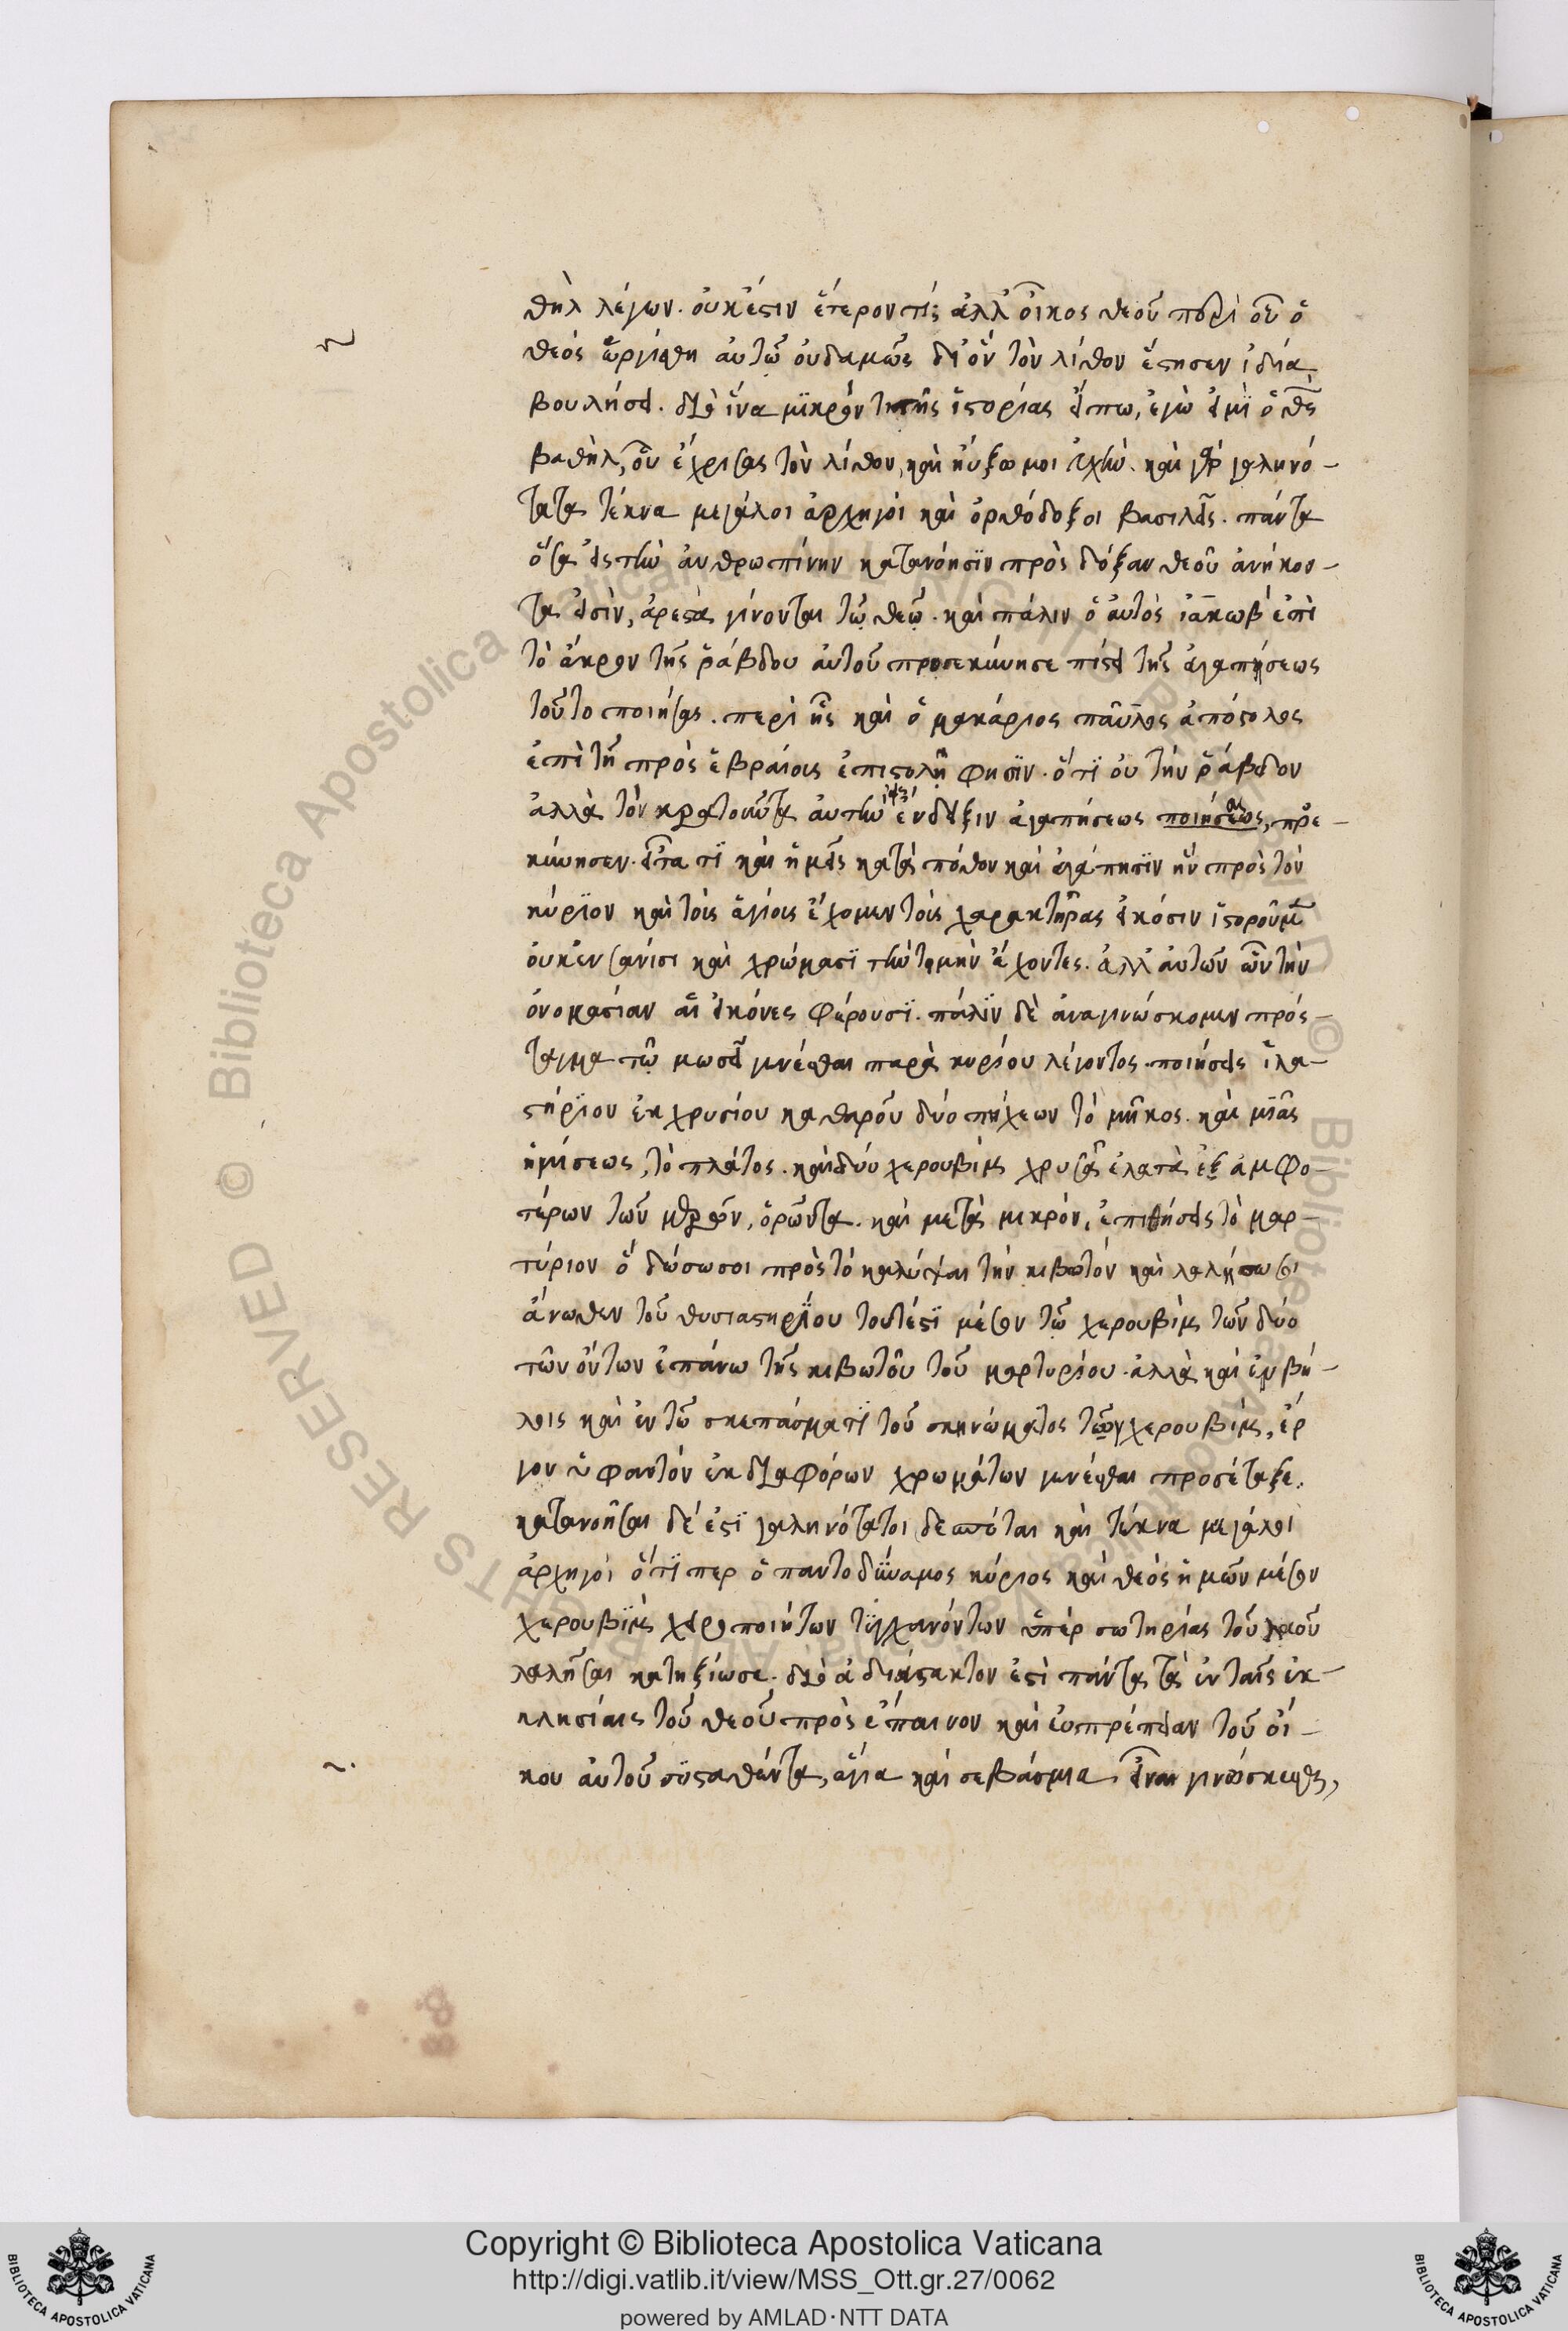 θὴλ λέγων. οὐκ ἔστιν ἕτερον τί; ἀλλ' οἶκος θεοῦ περὶ οὗ ὁ
θεὸς ὠργίσθη αὐτῷ οὐδαμῶς δι' ὃν τὸν λίθον ἔστησεν ἰδία
βουλήσει. διὸ ἵνα μϊκρόν τι τῆς ἱστορίας εἴπω, ἐγὼ εἰμὶ ὁ θς
βαθὴλ, οὗ ἔχρισας τὸν λίθον, καὶ ηὔξω μοι εὐχὴν. καὶ γὰρ γαληνό-
τατα τέκνα μεγάλοι ἀρχηγοὶ καὶ ὀρθόδοξοι βασιλεῖς. πάντα
ὅσα εἰς τὴν ἀνθρωπίνην κατανόησϊν πρὸς δόξαν θεοῦ ἀνήκον-
τα εἰσὶν, ἀρεστὰ γίνονται τῷ θεῷ. καὶ πάλιν ὁ αὐτὸς ἰακωβ ἐπὶ
τὸ ἄκρον τῆς ῥάβδου αὐτοῦ προσεκύνησε πίστει τῆς ἀγαπήσεως
τοῦτο ποιήσας. περὶ ἧς καὶ ὁ μακάριος παῦλος ἀπόστολος
ἐπὶ τῇ πρὸς ἑβραίοις ἐπιστολῇ φησϊν. ὅτϊ οὐ τὴν ῥάβδον
ἀλλὰ τὸν κρατοῦντα αὐτὴν ἔνδειξιν ἀγαπήσεως ποιήσεως, προσε-
κύνησεν. εἶτα τϊ καὶ ἡμεῖς κατὰ πόθον καὶ ἀγάπησϊν ἣν πρὸς τὸν
κύρϊον καὶ τοὺς ἁγίους ἔχομεν τοὺς χαρακτῆρας εἰκόσιν ἱστοροῦμεν
οὐκ ἐν σανίσι καὶ χρώμασϊ τὴν τϊμὴν ἔχοντες. ἀλλ' αὐτῶν ὧν τὴν
ὀνομασίαν αἱ εἰκόνες φέρουσϊ. πάλϊν δὲ ἀναγινώσκομεν πρός-
ταγμα τῷ μωσεῖ γενέσθαι παρὰ κυρίου λέγοντος. ποιήσεις ἱλα-
στήρϊον ἐκ χρυσίου καθαροῦ δύο πήχεων τὸ μῆκος. καὶ μϊᾶς
ἡμίσεως, τὸ πλάτος. καὶ δύο χερουβὶμ χρυσᾶ ἐλατὰ ἐξ ἀμφο-
τέρων τῶν μερῶν, ὁρῶντα. καὶ μετὰ μικρόν, ἐπιθήσεις τὸ μαρ-
τύριον ὃ δώσω σοι πρὸς τὸ καλύψαι τὴν κιβωτόν καὶ λαλήσω σοι
ἄνωθεν τοῦ θυσιαστηρίου τουτέστϊ μέσον τῶν χερουβὶμ τῶν δύο
τῶν ὄντων ἐπάνω τῆς κιβωτοῦ τοῦ μαρτυρίου. ἀλλὰ καὶ ἐν βή-
λοις καὶ ἐν τῷ σκεπάσματϊ τοῦ σκηνώματος τῶν χερουβὶμ, ἔρ
γον ὑφαντόν ἐκ διαφόρων χρωμάτων γενέσθαι προσέταξε.
κατανοῆσαι δέ ἐστϊ γαληνότατοι δεσπόται καὶ τέκνα μεγάλοι
ἀρχηγοὶ ὅτϊ περ ὁ παντοδύναμος κύριος καὶ θεὸς ἡμῶν μέσον
χερουβὶμ χειροποιήτων τϋγχανόντων ὑπὲρ σωτηρίας τοῦ λαοῦ
λαλῆσαι κατηξίωσε. διὸ ἀδιάστακτον ἐστὶ πάντα τὰ ἐν ταῖς ἐκ-
κλησίαις τοῦ θεοῦ πρὸς ἔπαινον καὶ εὐπρέπειαν τοῦ οἴ-
κου αὐτοῦ συσταθέντα, ἅγια καὶ σεβάσμια, εἶναι γινώσκεσθε,
Copyright © Biblioteca Apostolica Vaticana
http://digi.vatlib.it/view/MSS_Ott.gr.27/0062
powered by AMLAD·NTT DATA